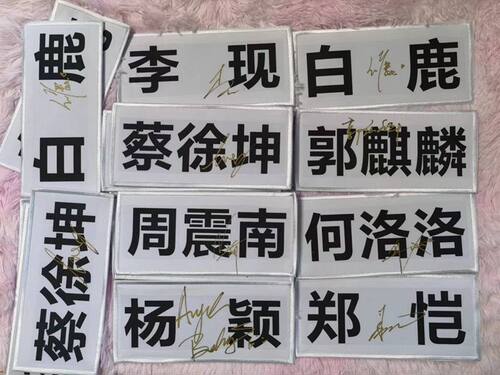 白鹿
李现
白鹿
蔡徐坤
郭麒麟
蔡徐坤
周震南
何洛洛
杨颖
郑恺